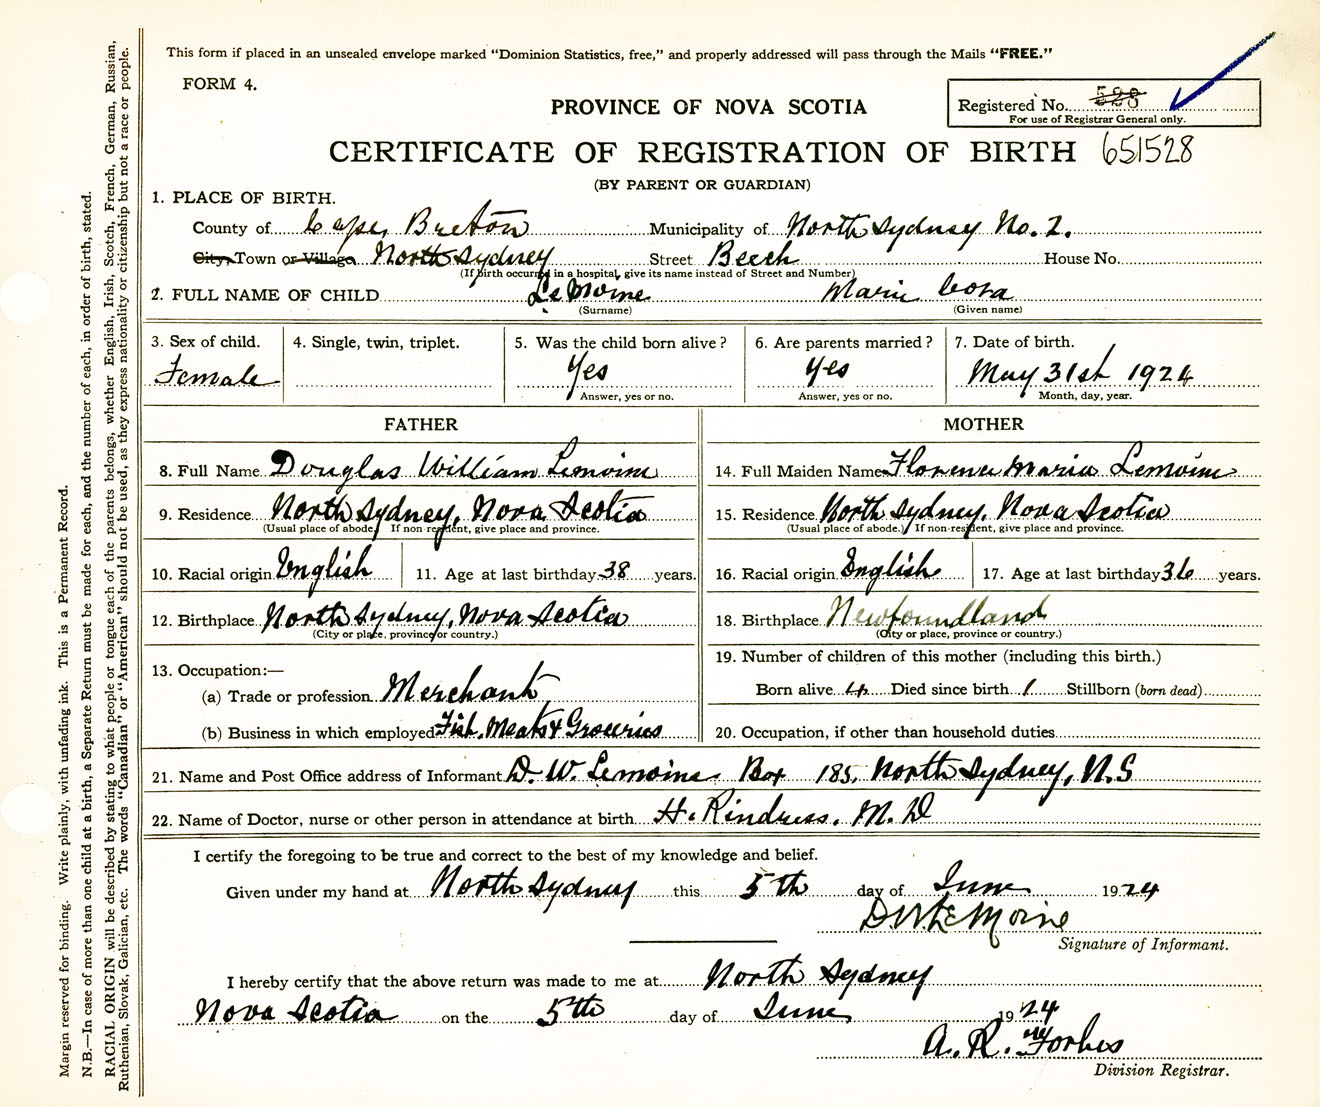 This form if placed in an unsealed envelope marked "Dominion Statistics, free," and properly addressed will pass through the Mails "FREE."
FORM 4.
Registered No. 528
For use of Registrar General only.
PROVINCE OF NOVA SCOTIA
CERTIFICATE OF REGISTRATION OF BIRTH 651528
(BY PARENT OR GUARDIAN)
1. PLACE OF BIRTH.
County of Cape Breton Municipality of North Sydney No. 2.
City, Town or Village North Sydney Street Beech House No.
(If birth occurred in a hospital, give its name instead of Street and Number)
2. FULL NAME OF CHILD LeMoine Marie Cora
(Surname) (Given name)
3. Sex of child. 4. Single, twin, triplet. 5. Was the child born alive? 6. Are parents married? 7. Date of birth.
Female Yes Yes May 31st 1924
Answer, yes or no. Answer, yes or no. Month, day, year.
FATHER MOTHER
8. Full Name Douglas William Lemoine 14. Full Maiden Name Florence Maria Lemoine
9. Residence North Sydney, Nova Scotia 15. Residence North Sydney, Nova Scotia
(Usual place of abode. If non-resident, give place and province. (Usual place of abode.) If non-resident, give place and province.
10. Racial origin English 11. Age at last birthday 38 years. 16. Racial origin English 17. Age at last birthday 36 years.
12. Birthplace North Sydney, Nova Scotia 18. Birthplace Newfoundland
(City or place, province or country.) (City or place, province or country.)
13. Occupation:— 19. Number of children of this mother (including this birth.)
(a) Trade or profession Merchant Born alive 4 Died since birth 1 Stillborn (born dead)
(b) Business in which employed Fish, Meats & Groceries 20. Occupation, if other than household duties
21. Name and Post Office address of Informant D. W. Lemoine Box 185, North Sydney, N.S
22. Name of Doctor, nurse or other person in attendance at birth H. Rindress, M. D
I certify the foregoing to be true and correct to the best of my knowledge and belief.
Given under my hand at North Sydney this 5th day of June 1924
D W LeMoine
Signature of Informant.
I hereby certify that the above return was made to me at North Sydney
Nova Scotia on the 5th day of June 1924
A. R. Forbes
Division Registrar.
Margin reserved for binding. Write plainly, with unfading ink. This is a Permanent Record.
N.B.—In case of more than one child at a birth, a Separate Return must be made for each, and the number of each, in order of birth, stated.
RACIAL ORIGIN will be described by stating to what people or tongue each of the parents belongs, whether English, Irish, Scotch, French, German, Russian,
Ruthenian, Slovak, Galician, etc. The words "Canadian" or "American" should not be used, as they express nationality or citizenship but not a race or people.